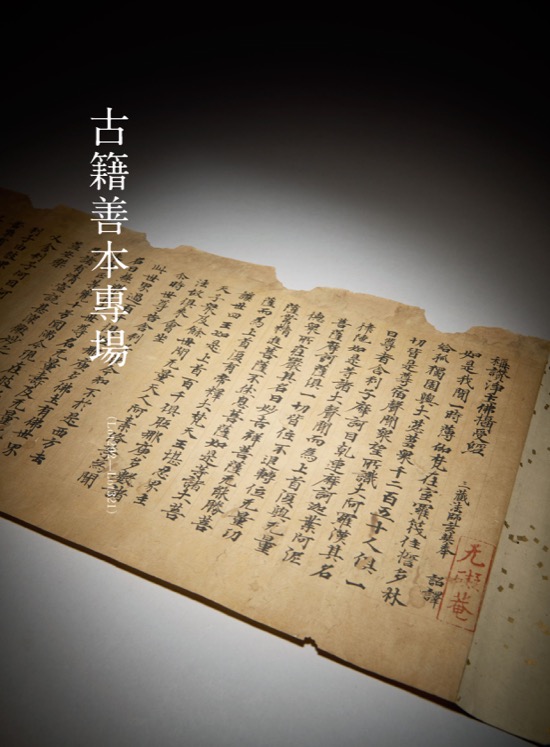 古籍善本專場
稱讚淨土佛攝受經
三藏法師玄奘奉 詔譯
如是我聞一時薄伽梵在室羅筏住誓多林
給孤獨園與大苾芻眾千二百五十人俱一
切皆是尊宿聲聞眾望所識大阿羅漢其名
曰尊者舍利子摩訶目乾連摩訶迦葉阿泥
律陀如是等諸大聲聞而為上首復與無量
菩薩摩訶薩俱一切皆住不退轉位無量功
德眾所莊嚴其名曰妙吉祥菩薩無能勝菩
薩常精進菩薩不休息菩薩如是等諸大菩
薩而為上首復有帝釋大梵天王堪忍界主
護世四王如是上首百千俱胝那庾多數諸
天子眾及餘世間無量天人阿素洛等為聞
法故俱來會坐
尒時世尊告舍利子汝今知不於是西方去
此世界過百千俱胝那庾多佛土有佛世界
无礙菴